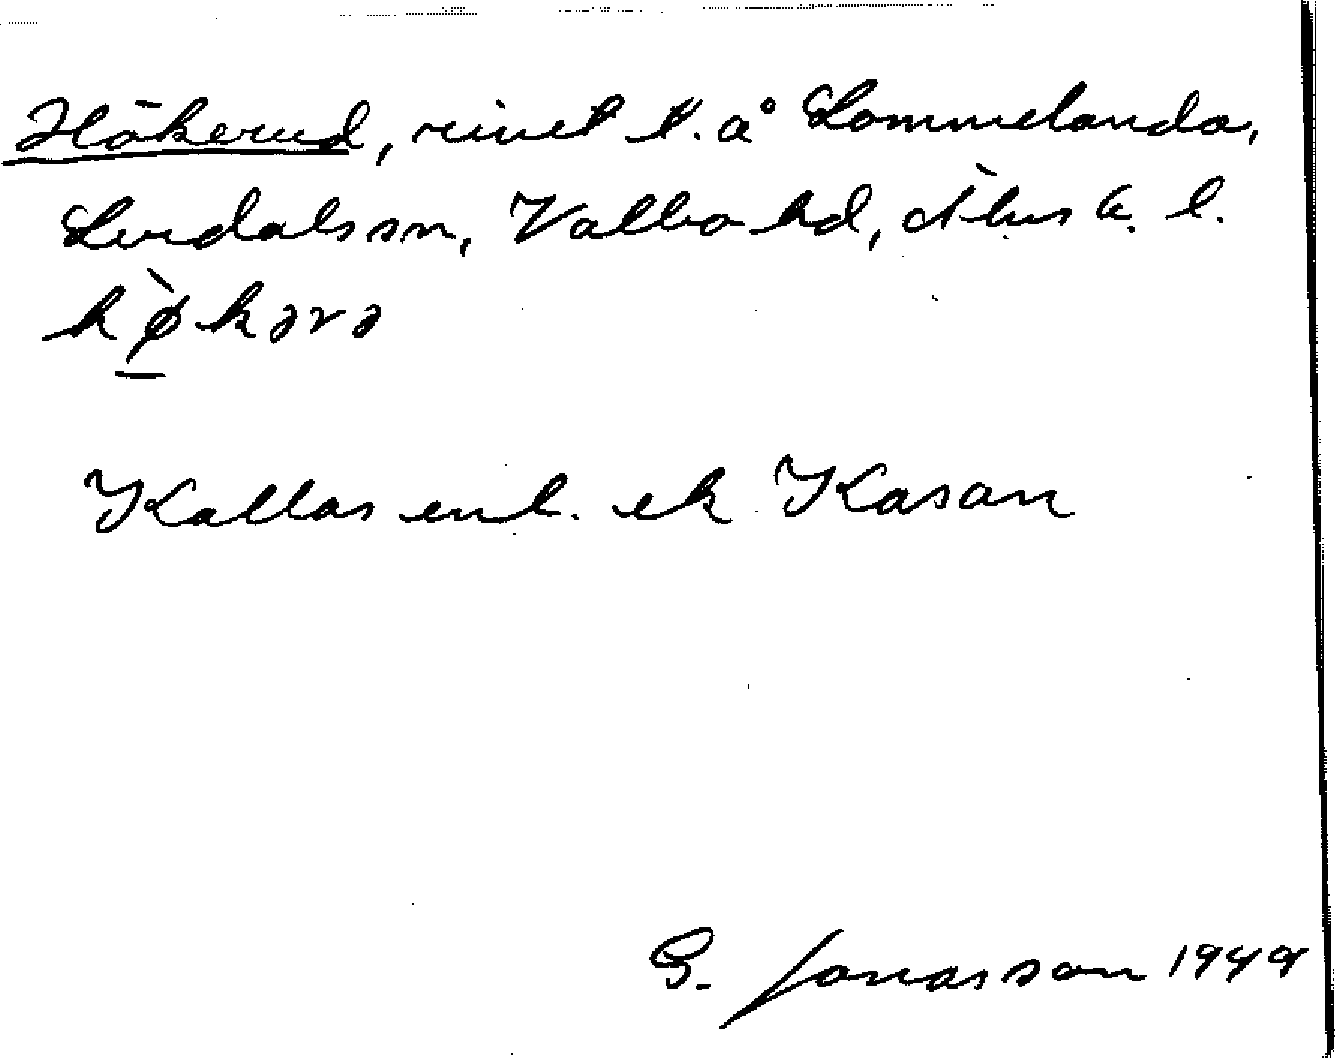 Håkerud, rivet t. å Lommelanda,
Lurdals sn, Valbo hd, Älvs b. l.
hø̀kərə
Kallas enl. ek Kasan
G. Jonasson 1949